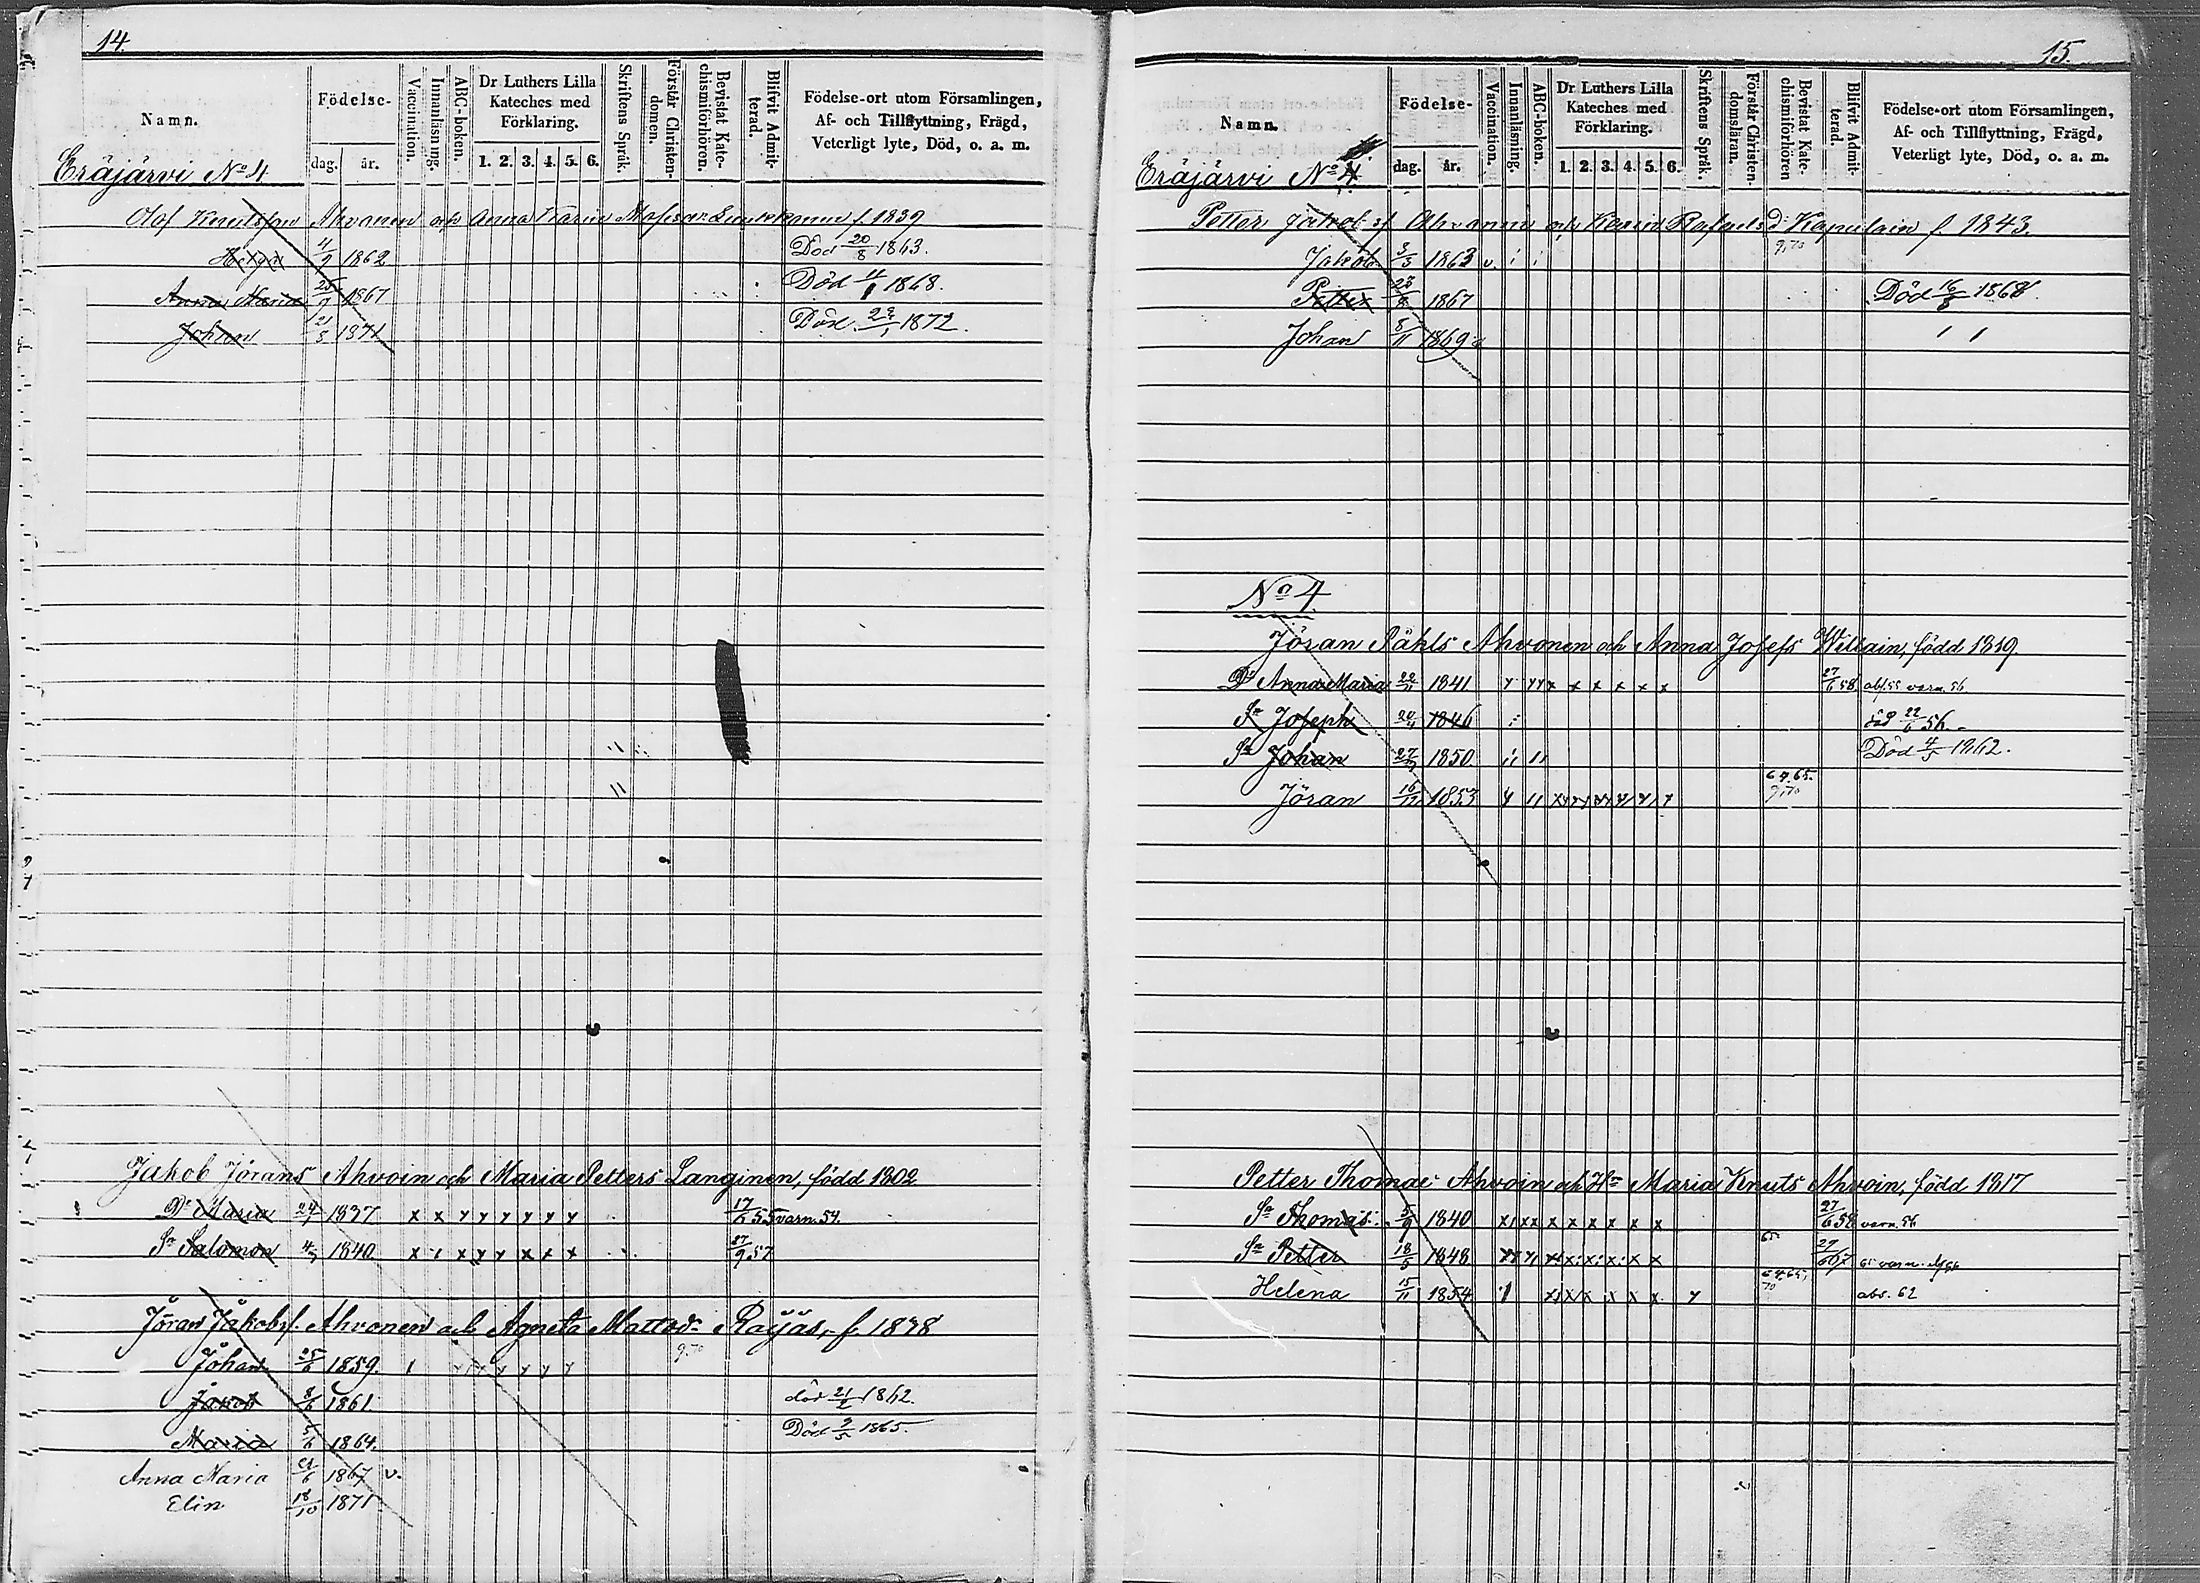 14.
Namn.
Födelse-
dag. år.
Vaccination.
Innanläsning.
ABC-boken.
Dr Luthers Lilla
Kateches med
Förklaring.
1. 2. 3. 4. 5. 6.
Skriftens Språk.
Förstår Christen-
domen.
Bevistat Kate-
chismiförhören.
Blifvit Admit-
terad.
Födelse-ort utom Församlingen,
Af- och Tillflyttning, Frägd,
Veterligt lyte, Död, o. a. m.
Eräjärvi No 4
Olof Knutsson Ahvonen och Anna Karin f. 1839
Helga 4/9 1862 Död 20/8 1863.
Anna Maria 1867 Död 1868.
Johan 21/8 1871 Död 1872.
Jakob Jörans Ahvoin och Maria Petters Langinen, född 1802
Dr Maria 1837 x x y y y y y y 17/6 55 varn. 54.
Sn Salomon 1840 57
Jöran Jakobsf. Ahvonen och Agneta Mattsdr Räjäs, f. 1838
9,70
Johan 25/6 1859
Jakob 8/6 1861 död 1862.
Maria 5/6 1864. Död 1865.
Anna Maria 1867 v.
Elin 18/10 1871
15.
Namn.
Födelse-
dag. år.
Vaccination.
Innanläsning.
ABC-boken.
Dr Luthers Lilla
Kateches med
Förklaring.
1. 2. 3. 4. 5. 6.
Skriftens Språk.
Förstår Christen-
domsläran.
Bevistat Kate-
chismiförhören
Blifvit Admit-
terad.
Födelse-ort utom Församlingen,
Af- och Tillflyttning, Frägd,
Veterligt lyte, Död, o. a. m.
Eräjärvi No 4.
Petter Jakobsf Ahvonen och Karin Rafaels D: Kapulain f. 1843.
9,70
Jakob 3/3 1863 v.
Petter 1867 Död 1868.
Johan 8/11 1869
No 4.
Jöran Påhls Ahvonen och Anna Josefs Willain, född 1819.
Dr Anna Maria 22/11 1841 27/6 58. abs. 55 varn. 56
Sn Joseph 1846 död 22/6 56.
Sn Johan 1850 Död 4/5 1862.
64.65.
Jöran 16/12 1853 9,70
Petter Thomae Ahvoin och Hu Maria Knuts Ahvoin, född 1817
Sn Thomas 5/9 1840 27/6 58 varn. 56
Sn Petter 18/5 1848 65 varn.
Helena 15/11 1854 64.65, 70 abs. 62